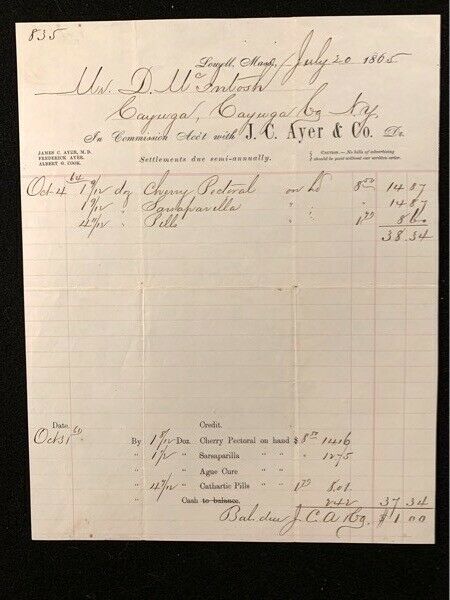 835
Lowell, Mass., July 20 1865
Mr. D. McIntosh
Cayuga, Cayuga Co N.Y.
In Commission Acc't with J. C. Ayer & Co. Dr.
JAMES C. AYER, M.D.
FREDERICK AYER.
ALBERT G. COOK.
Settlements due semi-annually.
CAUTION.—No bills of advertising should be paid without our written order.
64
Oct 4 1 9/12 doz Cherry Pectoral on hd 8.50 14.87
1 9/12 " Sarsaparilla " " 14.87
" Pills " 8.60
38.34
Date. Credit.
Oct 31 By 1 8/12 Doz. Cherry Pectoral on hand $ 8.50 14.16
" Sarsaparilla " " 12.75
" Ague Cure " "
" Cathartic Pills " 8.01
" Cash to balance. 2.42 37.34
Bal. due J. C. A & Co. $1.00